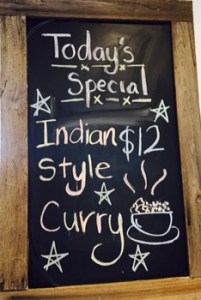 Today's
Special
Indian $12
Style
Curry